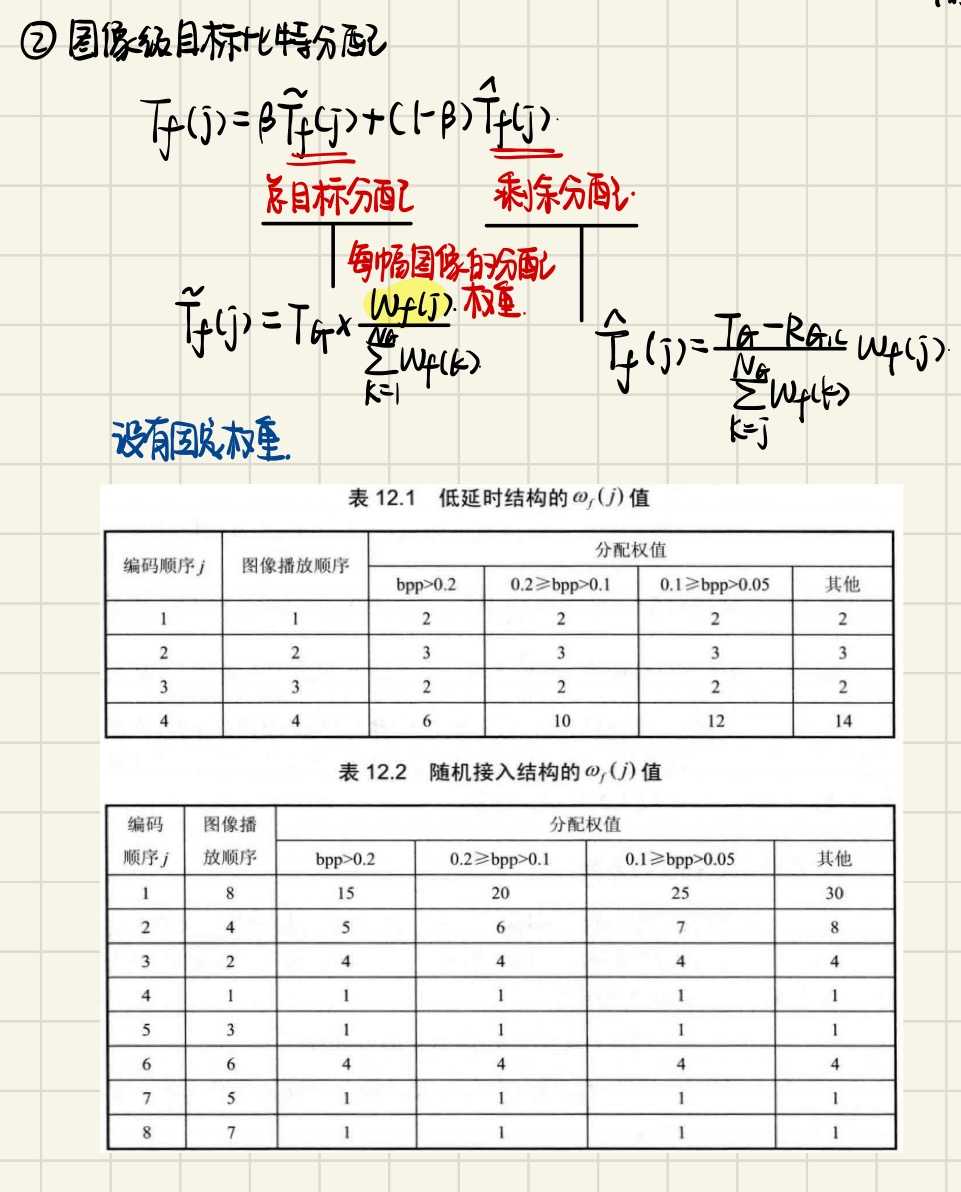 ② 图像级目标比特分配
T_f(j)=βT̃_f(j)+(1-β)T̂_f(j).
总目标分配 剩余分配.
每幅图像的分配
权重.
T̃_f(j)=T_G×W_f(j)/∑_{k=1}^{N_G}W_f(k).
T̂_f(j)=(T_G-R_{G,C})/(∑_{k=j}^{N_G}W_f(k)) W_f(j).
设有固定权重.
表 12.1 低延时结构的ω_f(j)值
编码顺序 j 图像播放顺序 分配权值
bpp>0.2 0.2≥bpp>0.1 0.1≥bpp>0.05 其他
1 1 2 2 2 2
2 2 3 3 3 3
3 3 2 2 2 2
4 4 6 10 12 14
表 12.2 随机接入结构的ω_f(j)值
编码 图像播 分配权值
顺序 j 放顺序 bpp>0.2 0.2≥bpp>0.1 0.1≥bpp>0.05 其他
1 8 15 20 25 30
2 4 5 6 7 8
3 2 4 4 4 4
4 1 1 1 1 1
5 3 1 1 1 1
6 6 4 4 4 4
7 5 1 1 1 1
8 7 1 1 1 1